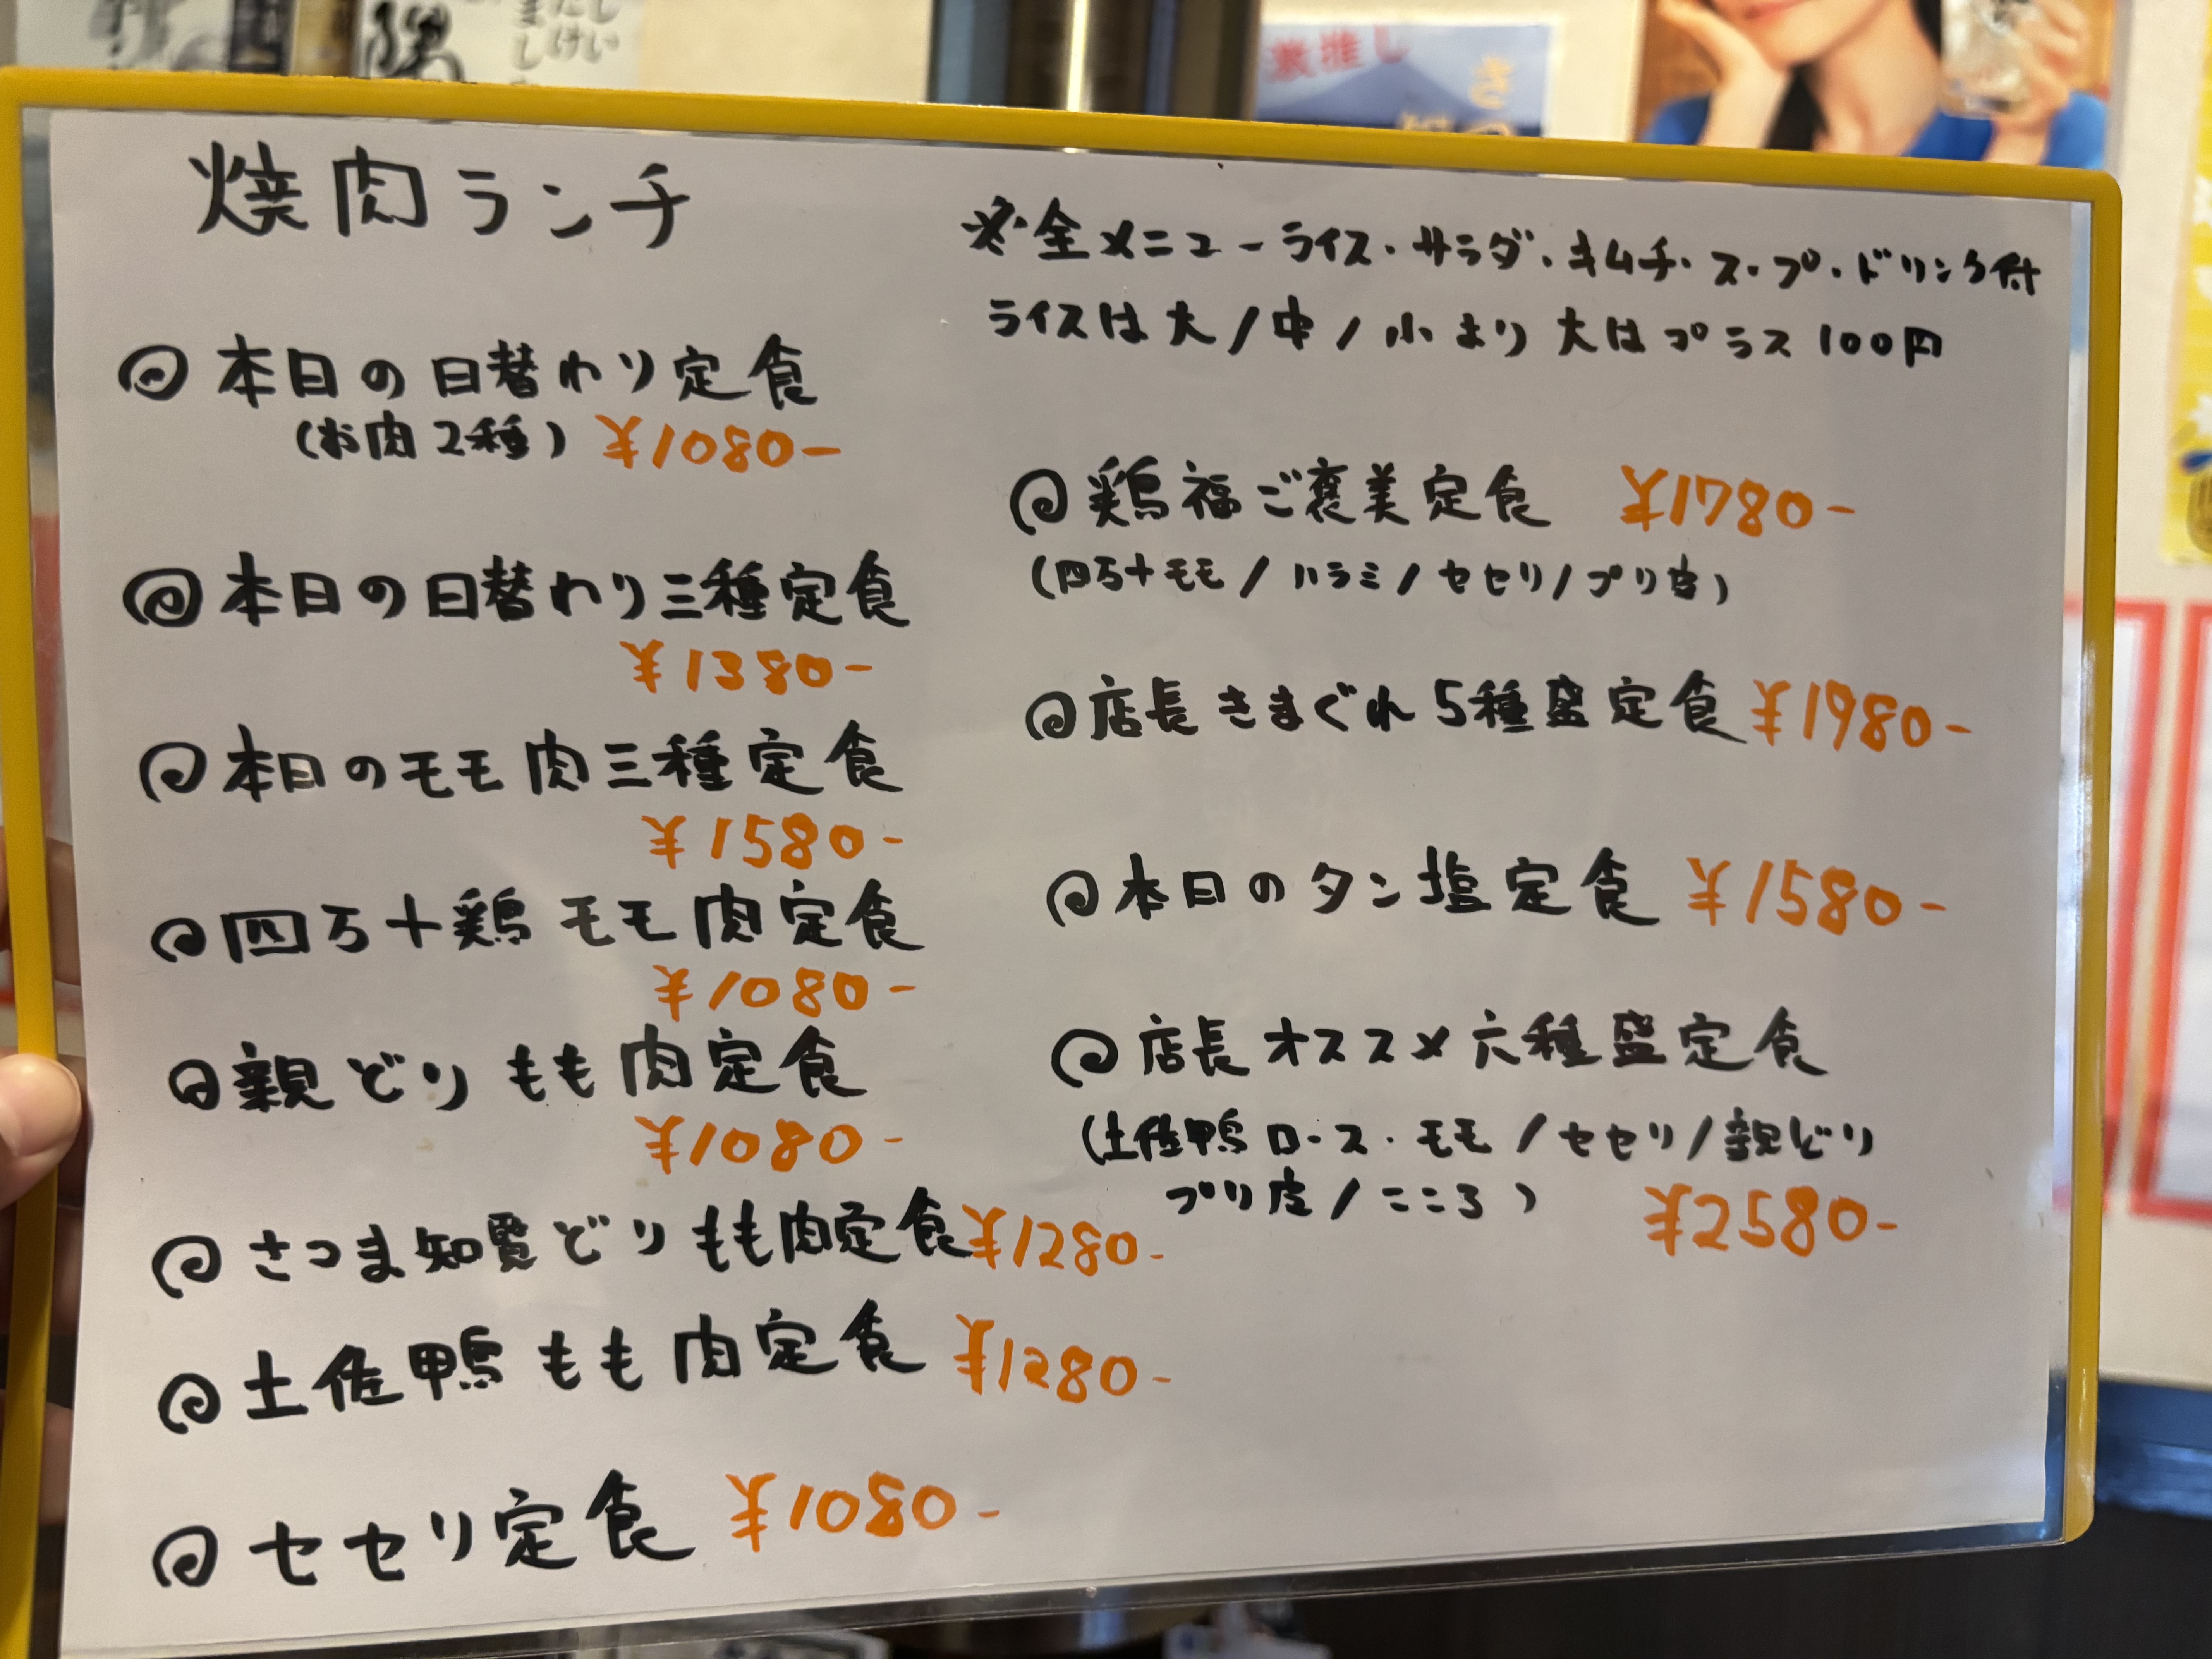 焼肉ランチ
※全メニューライス・サラダ・キムチ・スープ・ドリンク付
ライスは大/中/小より 大はプラス100円
本日の日替わり定食
(お肉2種) ¥1080-
本日の日替わり三種定食
¥1380-
本日のモモ肉三種定食
¥1580-
四万十鶏モモ肉定食
¥1080-
親どりもも肉定食
¥1080-
さつま知覧どりもも肉定食 ¥1280-
土佐鴨もも肉定食
セセリ定食 ¥1080-
鶏福ご褒美定食 ¥1780-
(四万十モモ/ハラミ/セセリ/プリ皮)
店長きまぐれ5種盛定食 ¥1980-
本日のタン塩定食 ¥1580-
店長オススメ六種盛定食
(土佐鴨ロース・モモ/セセリ/親どり
プリ皮/こころ) ¥2580-
激推し